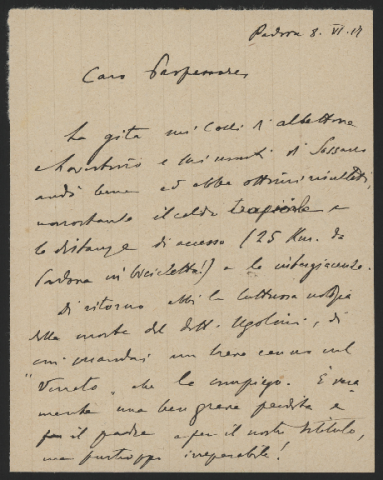 Padova 8. VI. 17
Caro
La gita nei Colli di Albettone
e Lovertino e nei monti di Sossano
andò bene ed ebbe ottimi risultati,
nonostante il caldo tropicale e
le distanze di accesso (25 Km. da
Padova in bicicletta!) e le
Di ritorno ebbi la luttuosa notizia
della morte del dott. Ugolini, di
cui mandai un breve cenno sul
"Veneto" che le compiego. È vera
mente una ben grave perdita e
il padre e per il nostro Istituto,
ma purtroppo irreparabile!